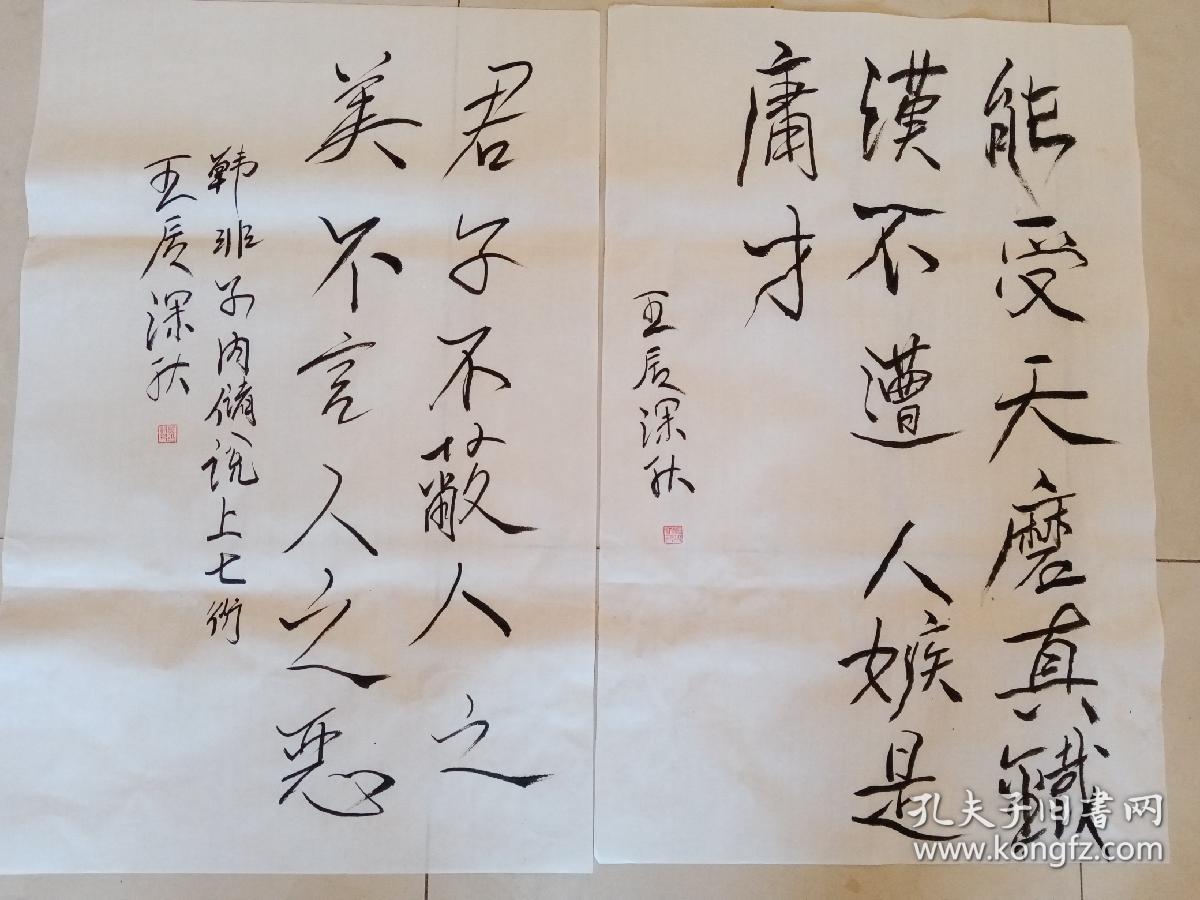 能受天磨真鐵
漢不遭人嫉是
庸才
壬辰深秋
君子不蔽人之
美不言人之惡
韓非子内儲說上七術
壬辰深秋
孔夫子旧書网
www.kongfz.com